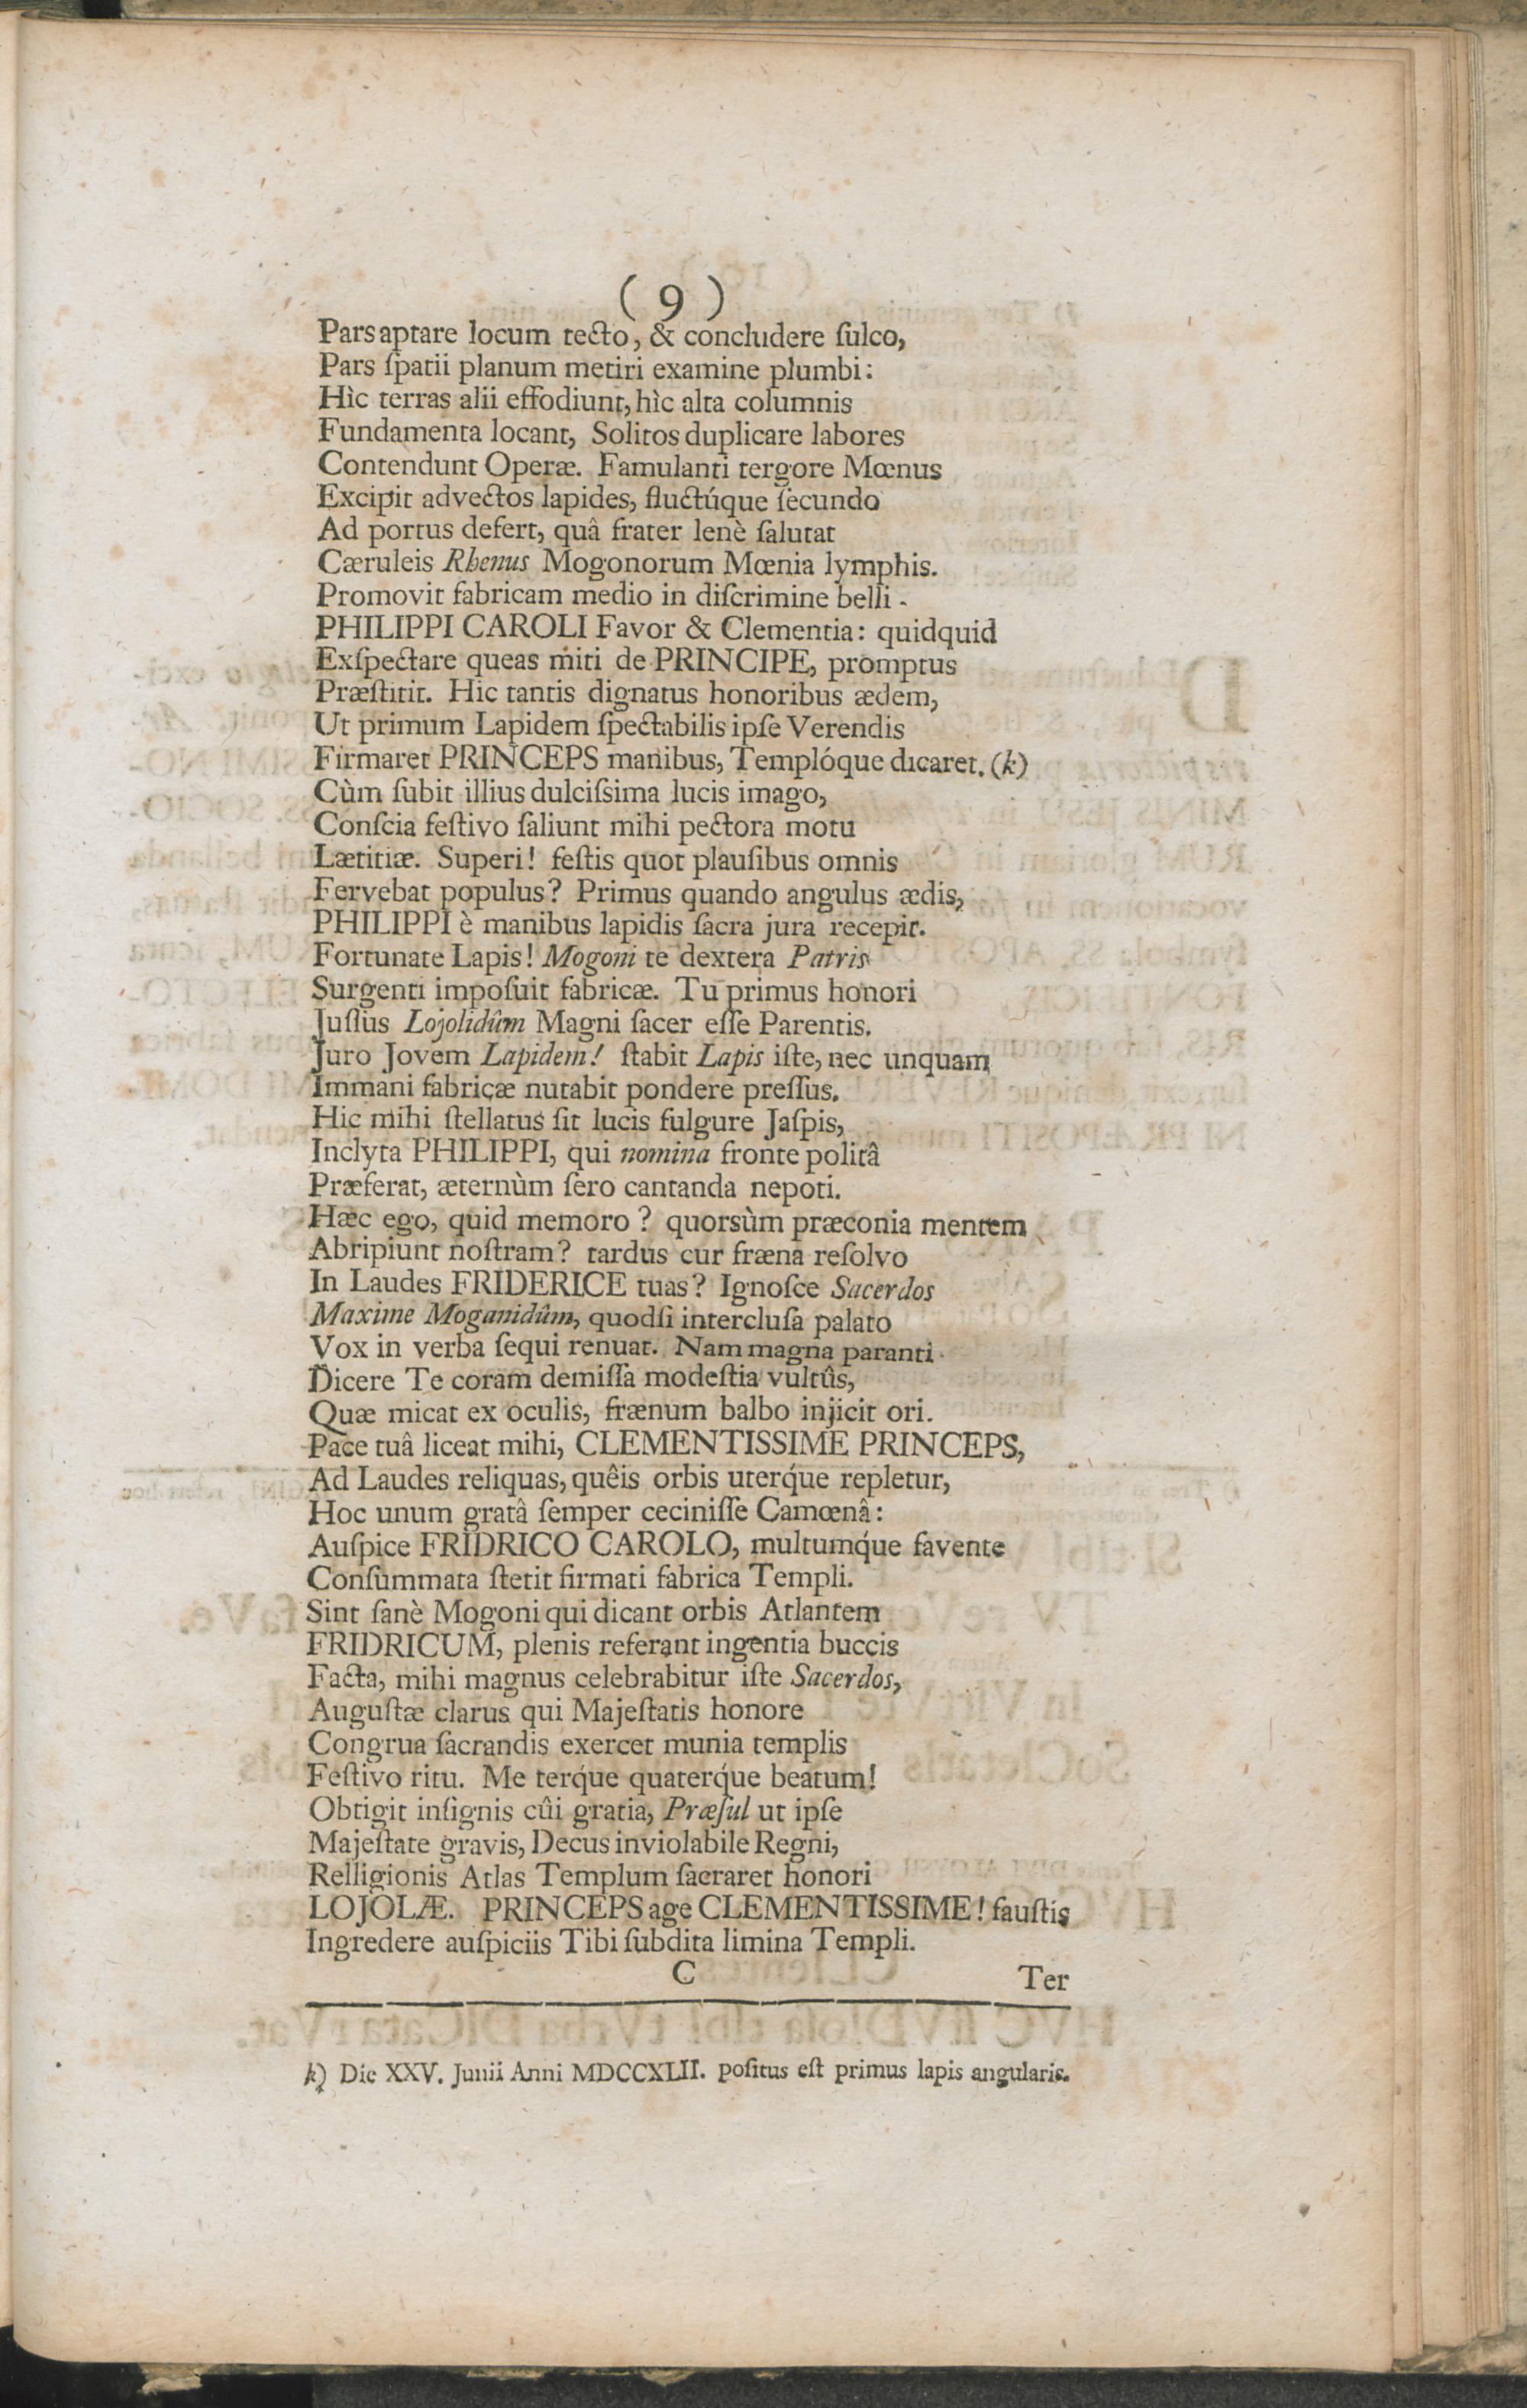 ( 9 )
Pars aptare locum tecto, & concludere ſulco,
Pars ſpatii planum metiri examine plumbi:
Hìc terras alii effodiunt, hìc alta columnis
Fundamenta locant, Solitos duplicare labores
Contendunt Operæ. Famulanti tergore Mœnus
Excipit advectos lapides, fluctúque ſecundo
Ad portus defert, quâ frater lenè ſalutat
Cæruleis Rhenus Mogonorum Mœnia lymphis.
Promovit fabricam medio in diſcrimine belli -
PHILIPPI CAROLI Favor & Clementia: quidquid
Exſpectare queas miti de PRINCIPE, promptus
Præſtitit. Hic tantis dignatus honoribus ædem,
Ut primum Lapidem ſpectabilis ipſe Verendis
Firmaret PRINCEPS manibus, Templóque dicaret. (k)
Cùm ſubit illius dulciſsima lucis imago,
Conſcia feſtivo ſaliunt mihi pectora motu
Lætitiæ. Superi! feſtis quot plauſibus omnis
Fervebat populus? Primus quando angulus ædis,
PHILIPPI è manibus lapidis ſacra jura recepit.
Fortunate Lapis! Mogoni te dextera Patris
Surgenti impoſuit fabricæ. Tu primus honori
Juſſus Lojolidûm Magni ſacer eſſe Parentis.
Juro Jovem Lapidem! ſtabit Lapis iſte, nec unquam
Immani fabricæ nutabit pondere preſſus.
Hic mihi ſtellatus ſit lucis fulgure Jaſpis,
Inclyta PHILIPPI, qui nomina fronte politâ
Præferat, æternùm ſero cantanda nepoti.
Hæc ego, quid memoro? quorsùm præconia mentem
Abripiunt noſtram? tardus cur fræna reſolvo
In Laudes FRIDERICE tuas? Ignoſce Sacerdos
Maxime Moganidûm, quodſi interclusa palato
Vox in verba ſequi renuat. Nam magna paranti
Dicere Te coram demiſſa modeſtia vultûs,
Quæ micat ex oculis, frænum balbo injicit ori.
Pace tuâ liceat mihi, CLEMENTISSIME PRINCEPS,
Ad Laudes reliquas, quêis orbis uterq́ue repletur,
Hoc unum gratâ ſemper ceciniſſe Camœnâ:
Auſpice FRIDRICO CAROLO, multumq́ue favente
Conſummata ſtetit firmati fabrica Templi.
Sint ſanè Mogoni qui dicant orbis Atlantem
FRIDRICUM, plenis referant ingentia buccis
Facta, mihi magnus celebrabitur iſte Sacerdos,
Auguſtæ clarus qui Majeſtatis honore
Congrua ſacrandis exercet munia templis
Feſtivo ritu. Me terq́ue quaterq́ue beatum!
Obtigit inſignis cûi gratia, Præſul ut ipſe
Majeſtate gravis, Decus inviolabile Regni,
Relligionis Atlas Templum ſacraret honori
LOJOLÆ. PRINCEPS age CLEMENTISSIME! fauſtis
Ingredere auſpiciis Tibi ſubdita limina Templi.
C Ter
k) Die XXV. Junii Anni MDCCXLII. poſitus eſt primus lapis angularis.